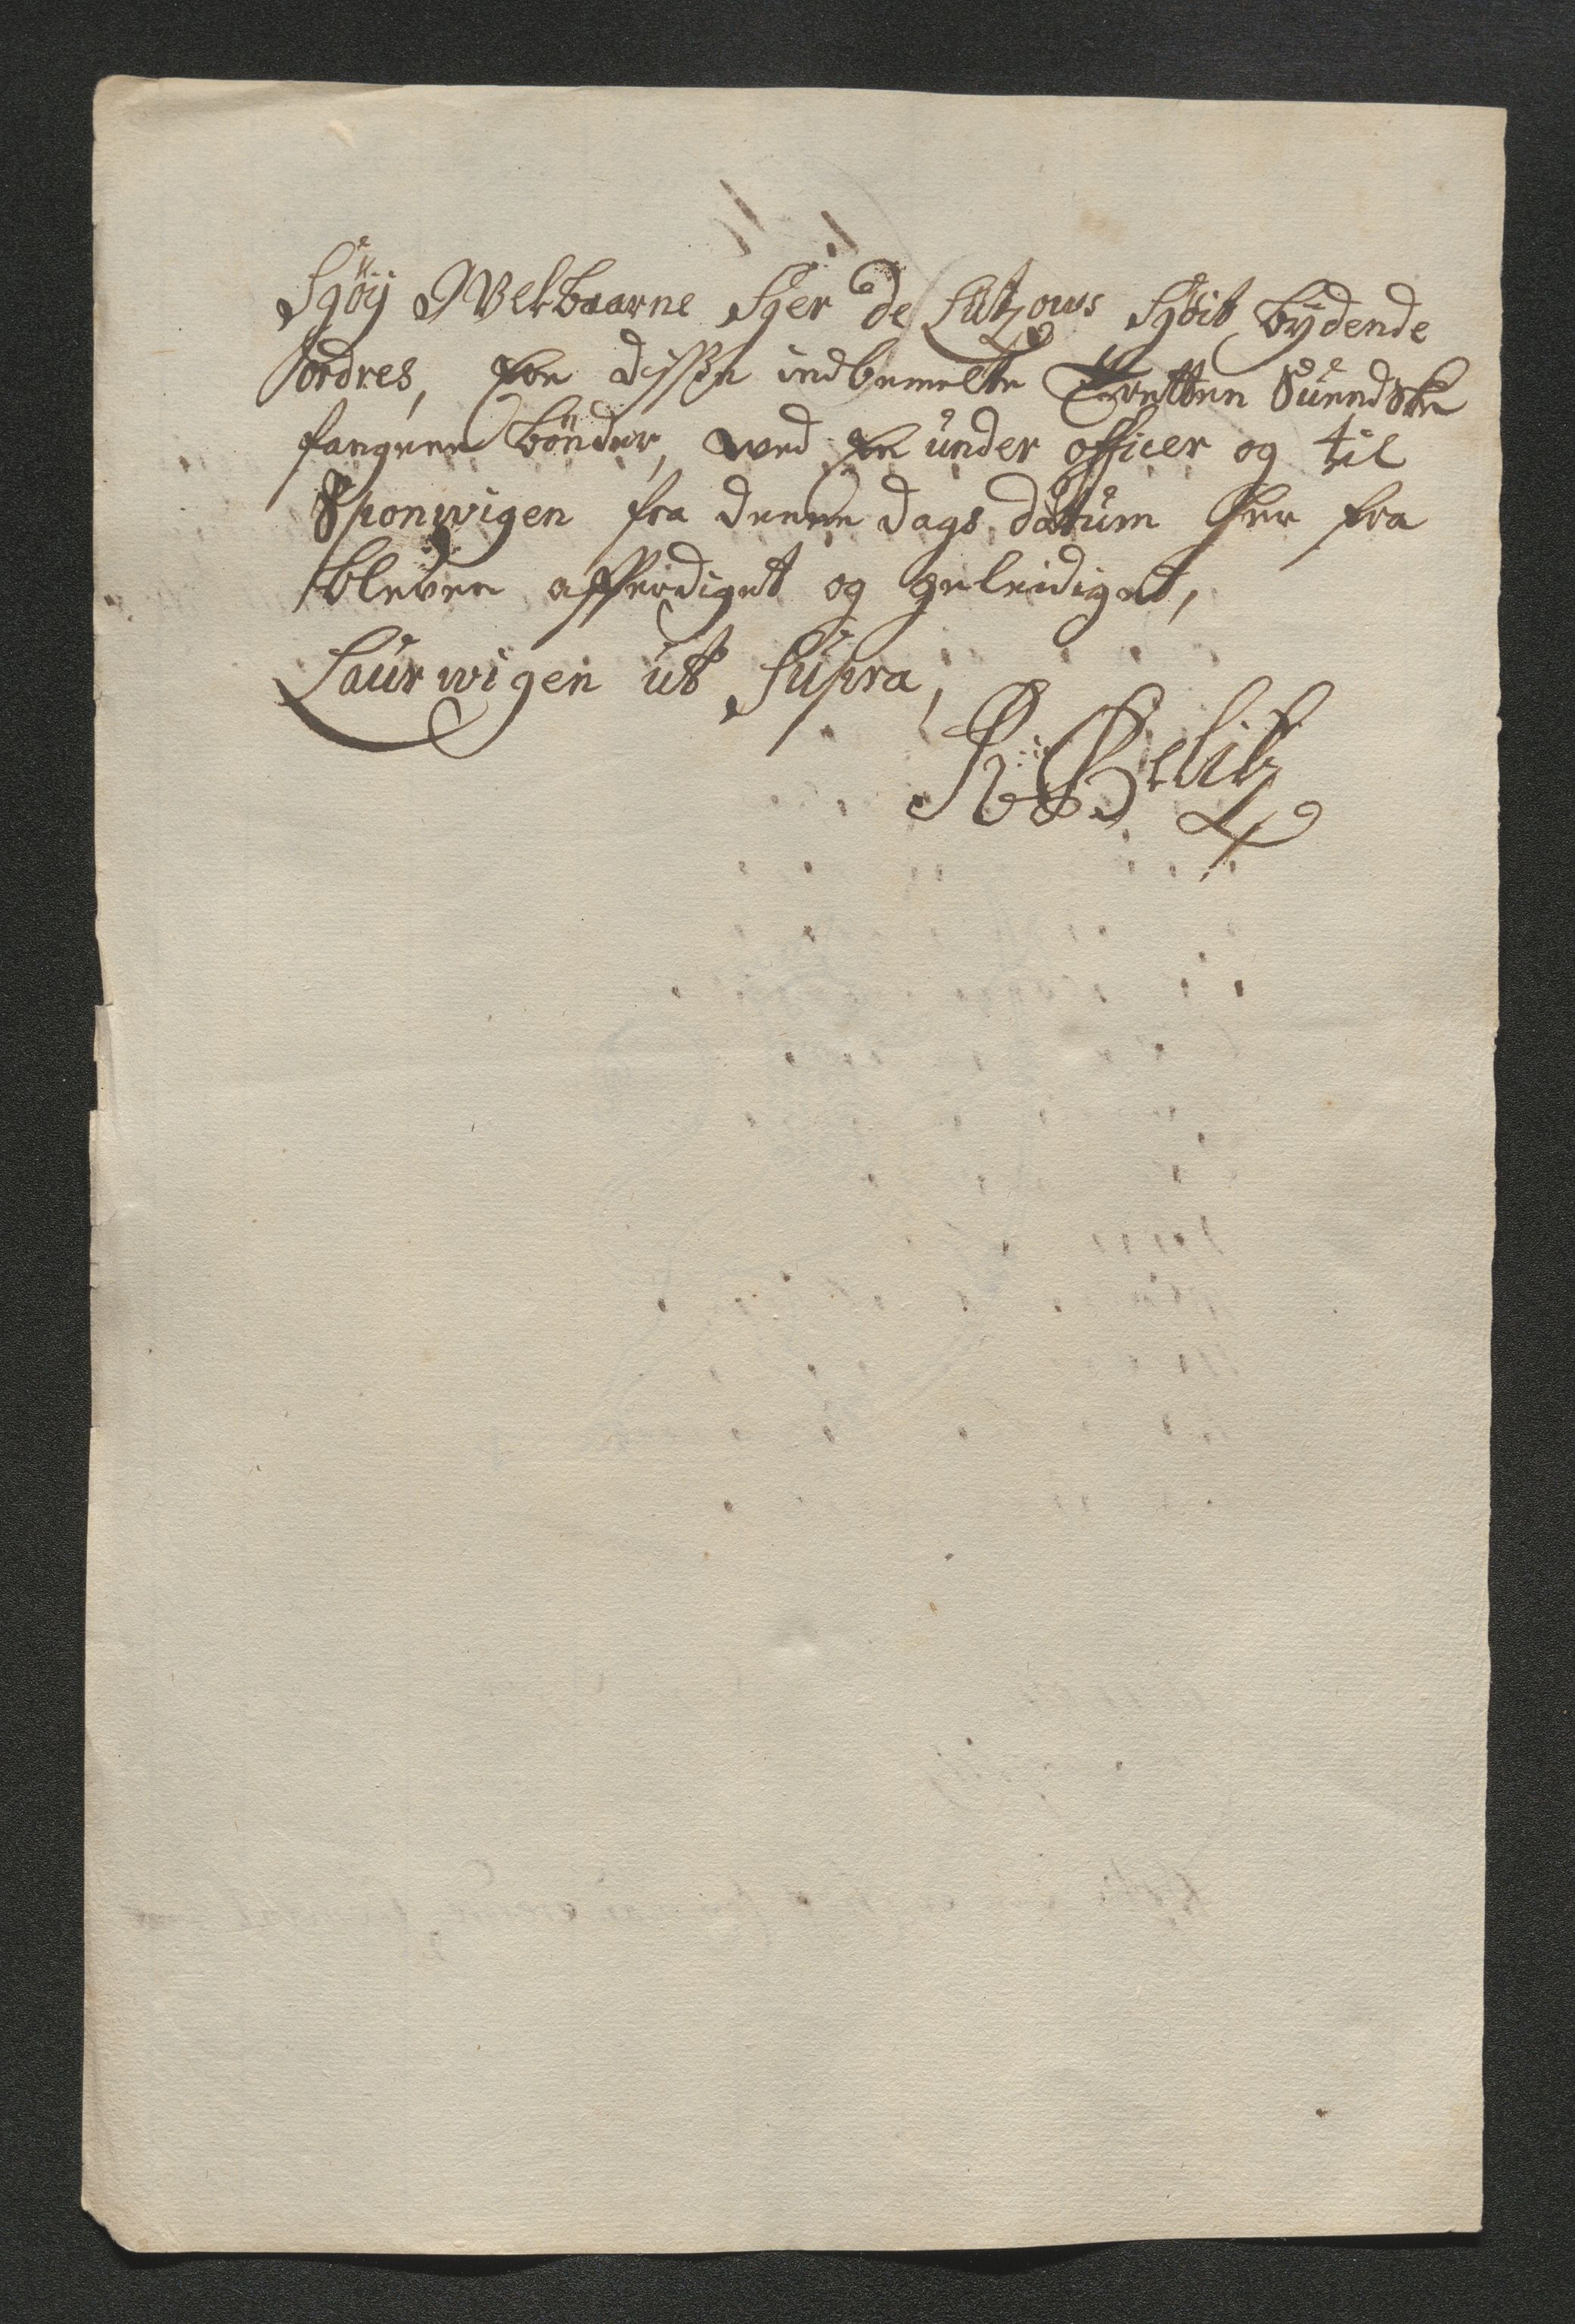 Høÿ Welbaarne Her de Lützows Høit bÿdende
ordres, Ere disse indbemelte Tretten Suendske
fangene bönder, med En under officer og til
Sponwigen fra denne dags datum Her fra
bleven afferdiget og geleidiget,
Laurwigen ut Supra,
Belitz